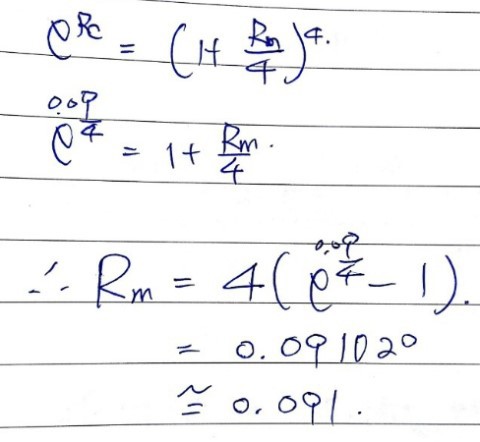 e^{Rc} = (1+ \frac{Rm}{4})^{4}.
e^{\frac{0.09}{4}} = 1+ \frac{Rm}{4}.
∴ Rm = 4(e^{\frac{0.09}{4}} - 1).
= 0.091020
≅ 0.091.